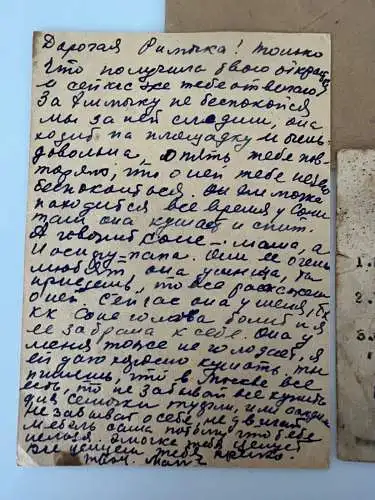 Дорогая Римыка! Только
что получила твою открытку
и сейчас же тебе отвечаю
За Эммочку не беспокойся
мы за ней следим, она
ходит на площадку и очень
довольна, опять тебе пов-
торяю, что о ней тебе нечего
беспокоиться. Он
находится все время у Сони
там она кушает и спит.
А говорит Соне – мама, а
Иосифу – папа. Они ее очень
любят она умница, ты
приедешь, то все расскажем
о ней сейчас она у меня,
Соне голова болит и я
ее забрала к себе. Она у
меня тоже не голодает, я
ей даю хорошо кушать, ты
пишешь, что в Москве все
есть, то не забывай все купить
для или
Не забывай о себе, не двигай
мебель сама потому что тебе
нельзя. Эмочка тебя целует
все целуем тебя крепко.
твоя мама
1.
2.
3.